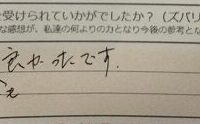 を受けられていかがでしたか？（ズバリ
な感想が、私達の何よりの力となり今後の参考とな
良かったです。